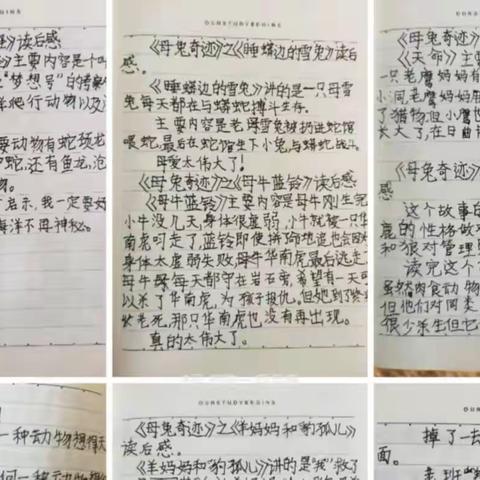 》读后感
》主要内容是个叫
"梦想号"的
爬行动物以及
要动物有蛇颈龙
蛇,还有鱼龙,沧
物。
启示,我一定要好
海洋不再神秘。
OURSTUDYBEGINS
《母兔奇迹》之《睡蟒边的雪兔》读后
感。
《睡蟒边的雪兔》讲的是一只母雪
兔每天都在与蟒蛇搏斗生存。
主要内容是老 雪兔被扔进蛇馆
喂蛇,最后在蛇馆生下小兔与蟒蛇战斗。
母爱太伟大了!
《母兔奇迹》之《母牛蓝铃》读后感
《母牛蓝铃》主要内容是母牛刚生完
小牛没几天,身体很虚弱,小牛就被一只华
南虎叼走了,蓝铃即使拼 地追也会因为
身体太虚弱失败,母牛华南虎最后逃走了
母牛 每天都守在岩石旁,希望有一天可
以杀了华南虎,为孩子报仇。但她到了
老死,那只华南虎也没有再出现。
真的太伟大了。
《母兔奇迹》
《天命》主要
一只老鹰妈妈
小洞老鹰妈妈
了猎物但小鹰也
长大了,在日
《母兔奇迹》
感
这个故事的
鹿的性格做对
和狼对管理
读完这个
虽然肉食动物
但他们对同类
很少杀生但它
一种动物想
何一种动物
OURSTUDYBEGINS
《母兔奇迹》之《羊妈妈和豹孤儿》
读后感。
《羊妈妈和豹孤儿》讲的是"我"救了
掉了一去
面。